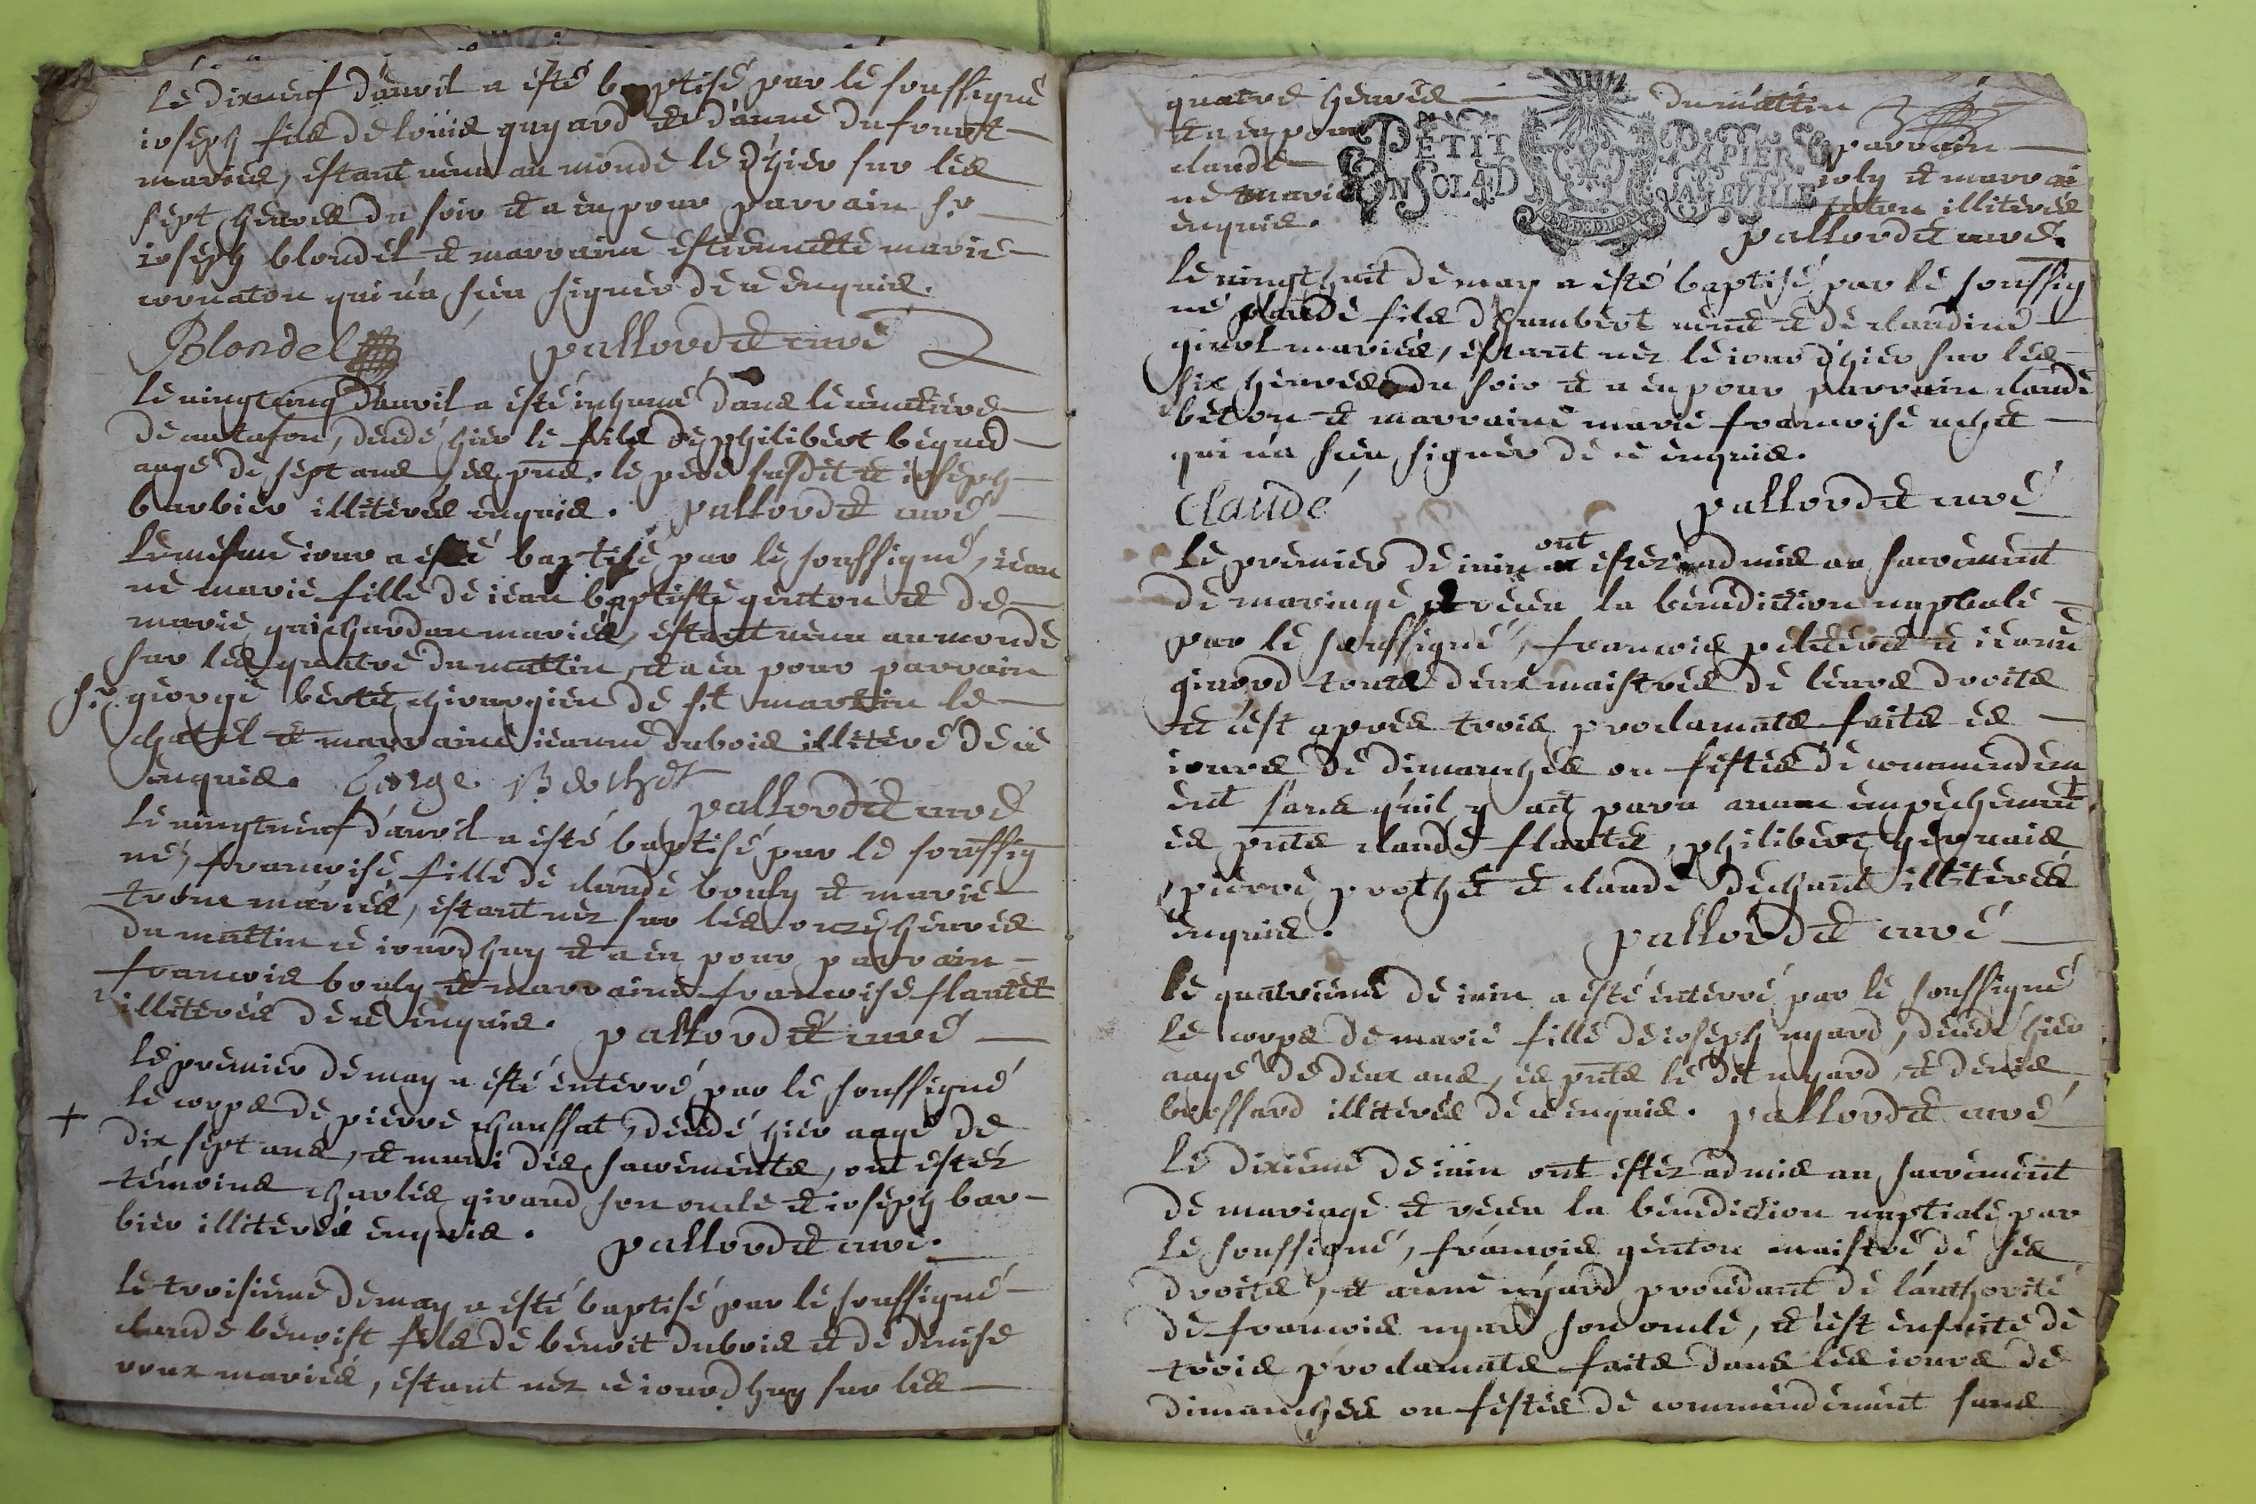 Le dixneuf d'auril a esté baptisé par le soussigné
ioseph fils de loüis guyard et d'anne dufourt
mariés, estant uenu au monde le d'hier sur les
sept heures du soir et a eu pour parrain sr
ioseph blondel et marraine estiennette marie
cornaton qui n'a sceu signer de ce enquis.
Blondel pallordet curé
le uingtcinq d'auril a esté inhumé dans le cimetiere
de cantafon, decedé hier le fils de philibert beguet
aagé de sept ans, es pns. le pere susdit et ioseph
barbier illiterés enquis. pallordet curé
Le mesme iour a esté baptisé par le soussigné, iean
ne marie fille de iean baptiste genton et de
marie guichardan mariés, estant uenu au monde
sur les quatre du mattin, et a eu pour parrain
sr. george bertet chirurgien de st martin le
chatel et marraine ieanne dubois illiteré de ce
enquis. George Berthet
pallordet curé
le uingtneuf d'auril a esté baptisé par le soussig
né, francoise fille de claude bouly et marie
trone mariés, estant nez sur les onze heures
du mattin ce iourdhuy et a eu pour parrain
francois bouly et marraine francoise flantet
illiterés de ce enquis. pallordet curé
Le premier de may a esté enterré par le soussigné
le corps de pierre chaussat, decedé hier aagé de
dix sept ans, et muni des sacrements, ont estez
témoins charles giraud son oncle et ioseph bar-
bier illiterés enquis. pallordet curé.
Le troisieme de may a esté baptisé par le soussigné
claude benoist fils de benoit dubois et de denise
roux mariés, estant nez ce iourdhuy sur les
quatre heures du mattin
et a eu pour parrain
claude joly et marrai
ne marie cornaton illiterés
enquis. pallordet curé.
PETIT PAPIER
UN SOL 4 D LA FEUILLE
le uingthuit de may a esté baptisé par le soussig
né claude fils d'humbert uenet et de claudine
girol mariés, estant nez le iour d'hier sur les
six heures du soir et a eu pour parrain claude
beton et marraine marie francoise uchet
qui n'a sceu signer de ce enquis.
Claude pallordet curé
Le premier de iuin ont estez admis au sacrement
de mariage et receu la benediction nuptiale
par le soussigné, francois peletieret et ieanne
girord touts deux maistres de leurs droits
et c'est apres trois proclamats faits es
iours de dimanches ou festes de commendem
ent sans qu'il y ait paru aucun empechement
es pnts claude flantet, philibert geruais
pierre prothet et claude dechant illiterés
enquis. pallordet curé
le quatrieme de iuin a esté enterré par le soussigné
Le corps de marie fille de ioseph uyard, decedé hier
aagé de deux ans, es pnts le dit uyard, et denis
brossard illiterés de ce enquis. pallordet curé
Le dixieme de iuin ont estez admis au sacrement
de mariage et receu la benediction nuptiale par
le soussigné, francois genton maistre de ses
droits, et anne uyard procedant de l'authorité
de francois uyard son oncle, et c'est ensuite de
trois proclamats faits dans les iours de
dimanches ou festes de commendement sans